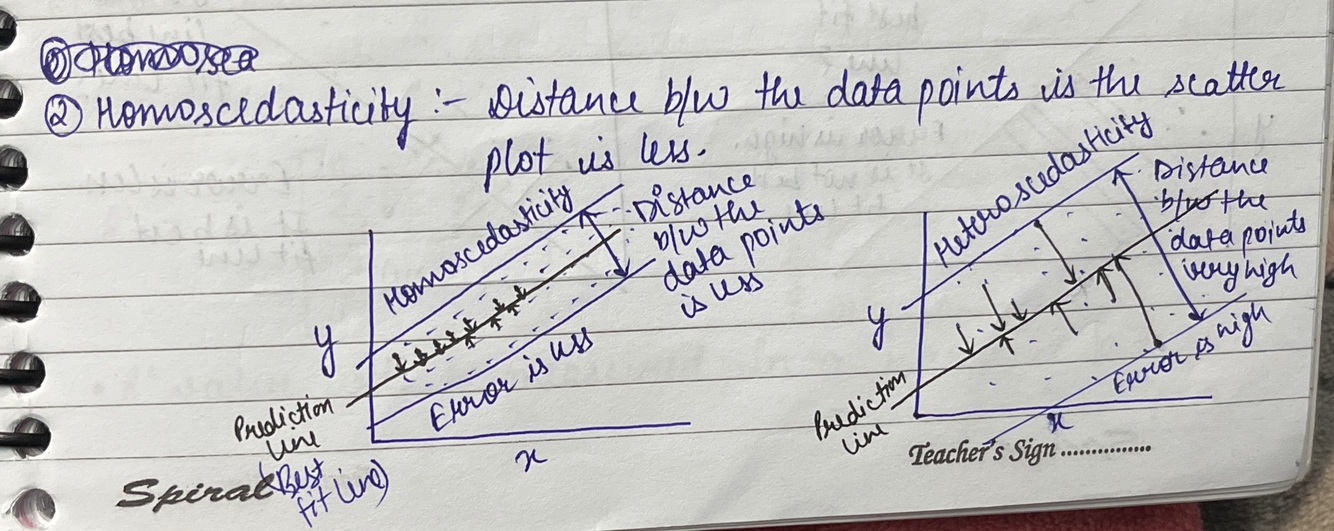 ② Homoscedasticity :- Distance b/w the data points is the scatter
plot is less.
Homoscedasticity
Distance
b/w the
data points
is less
y
Error is less
Prediction
line
(Best
fit line)
x
Heteroscedasticity
Distance
b/w the
data points
very high
y
Error is high
Prediction
line
x
Teacher's Sign ...............
Spiral